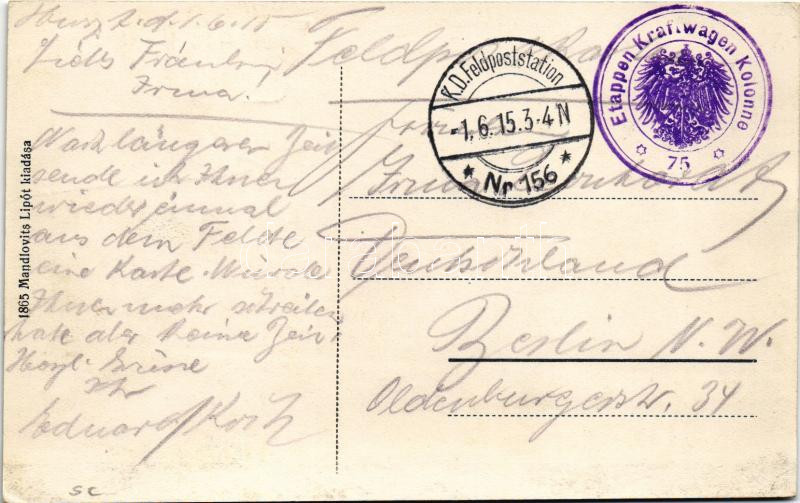 Huszt d. 1.6.15
Liebes Fräulein
Irma!
Nach längerer Zeit
sende ich Ihnen
wieder einmal
aus dem Felde
eine Karte. Würde
Ihnen mehr schreiben
habe aber keine Zeit
Herzl. Grüsse
Ihr
Eduard Koch
1865 Mandlovits Lipót kiadása
Feldpostkarte
K.D. Feldpoststation
-1.6.15.3-4 N
* Nr 156 *
Etappen Kraftwagen Kolonne
75
Deutschland
Berlin N.W.
Oldenburgerstr. 34
sc